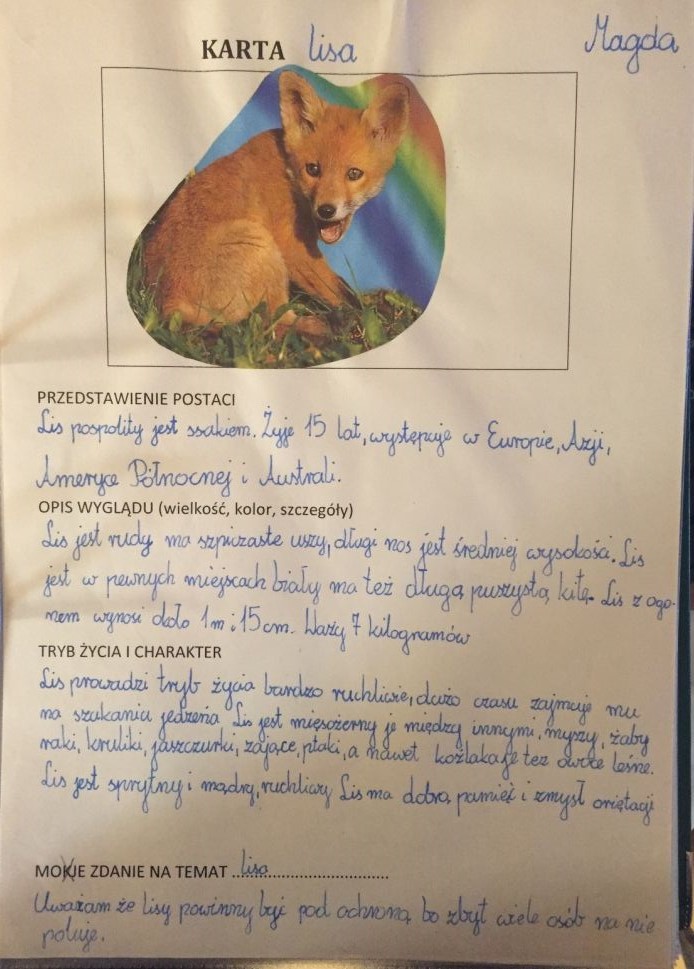 KARTA lisa
Magda
PRZEDSTAWIENIE POSTACI
Lis pospolity jest ssakiem. Żyje 15 lat, występuje w Europie, Azji,
Ameryce Północnej i Australi.
OPIS WYGLĄDU (wielkość, kolor, szczegóły)
Lis jest rudy ma szpiczaste uszy, długi nos jest średniej wysokości. Lis
jest w pewnych miejscach biały ma też długą puszystą kitę. Lis z ogo-
nem wynosi około 1m i 15 cm. Waży 7 kilogramów
TRYB ŻYCIA I CHARAKTER
Lis prowadzi tryb życia bardzo ruchliwie, dużo czasu zajmuje mu
na szukania jedzenia Lis jest mięsożerny je między innymi, myszy, żaby
raki, kruliki, jaszczurki, zające, ptaki, a nawet koźlaka je też owoce leśne.
Lis jest sprytny i mądry, ruchliwy Lis ma dobrą pamięć i zmysł orietacji
MOJE ZDANIE NA TEMAT lisa
Uważam że lisy powinny być pod ochroną bo zbyt wiele osób na nie
poluje.